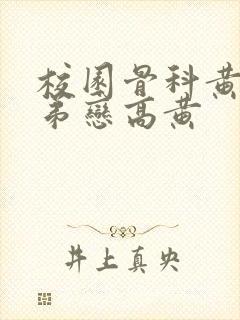 校園骨科黃
弟戀高黃
井上真央